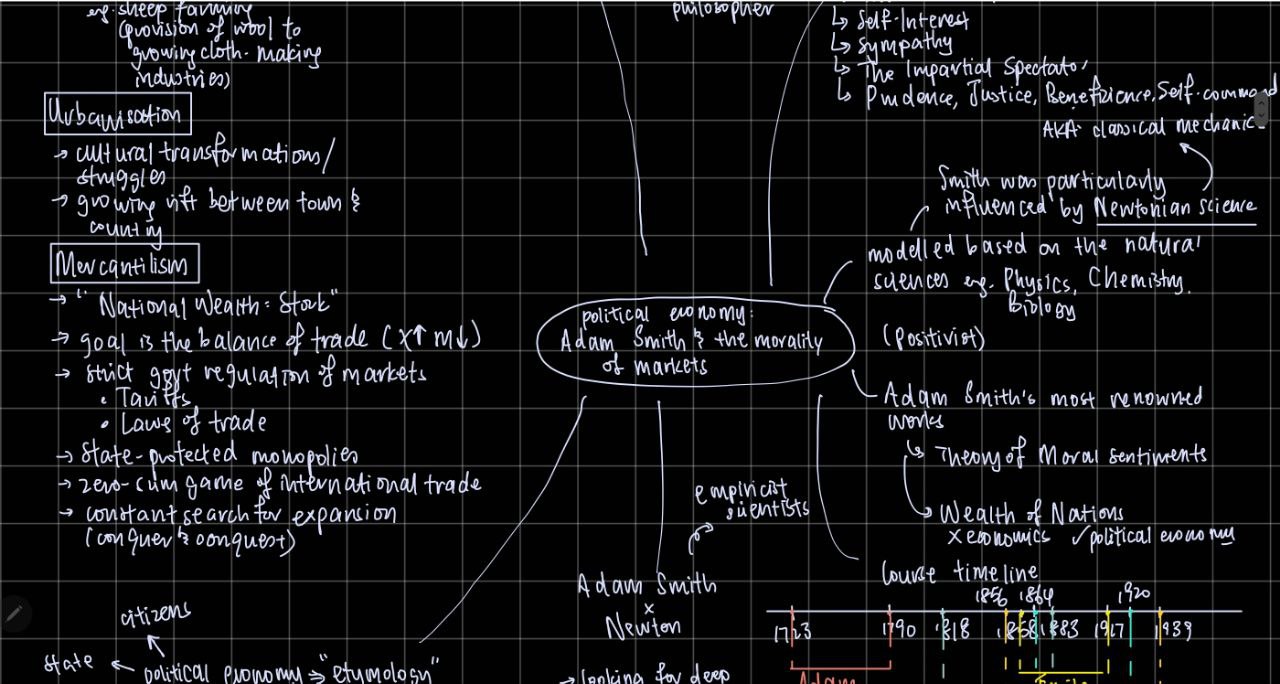 eg. sheep farming
(provision of wool to
growing cloth-making
industries)
Urbanisation
→ cultural transformations/
struggles
→ growing rift between town &
country
Mercantilism
→ "National Wealth = Stock"
→ goal is the balance of trade (X↑ M↓)
→ strict govt regulation of markets
• Tariffs
• Laws of trade
→ State-protected monopolies
→ zero-cum game of international trade
→ constant search for expansion
(conquer & conquest)
citizens
state ← political economy ⇒ "etymology"
philosopher
political economy:
Adam Smith & the morality
of markets
empiricist
scientists
Adam Smith
×
Newton
→ looking for deep
↳ Self-Interest
↳ Sympathy
↳ The Impartial Spectator
↳ Prudence, Justice, Beneficience, Self-command
AKA classical mechanic
Smith was particularly
influenced by Newtonian science
modelled based on the natural
sciences eg. Physics, Chemistry,
Biology
(Positivist)
Adam Smith's most renowned
works
↳ Theory of Moral Sentiments
Wealth of Nations
× economics ✓ political economy
Course timeline
1856 1864 1920
1723 1790 1818 1858 1883 1917 1939
Adam